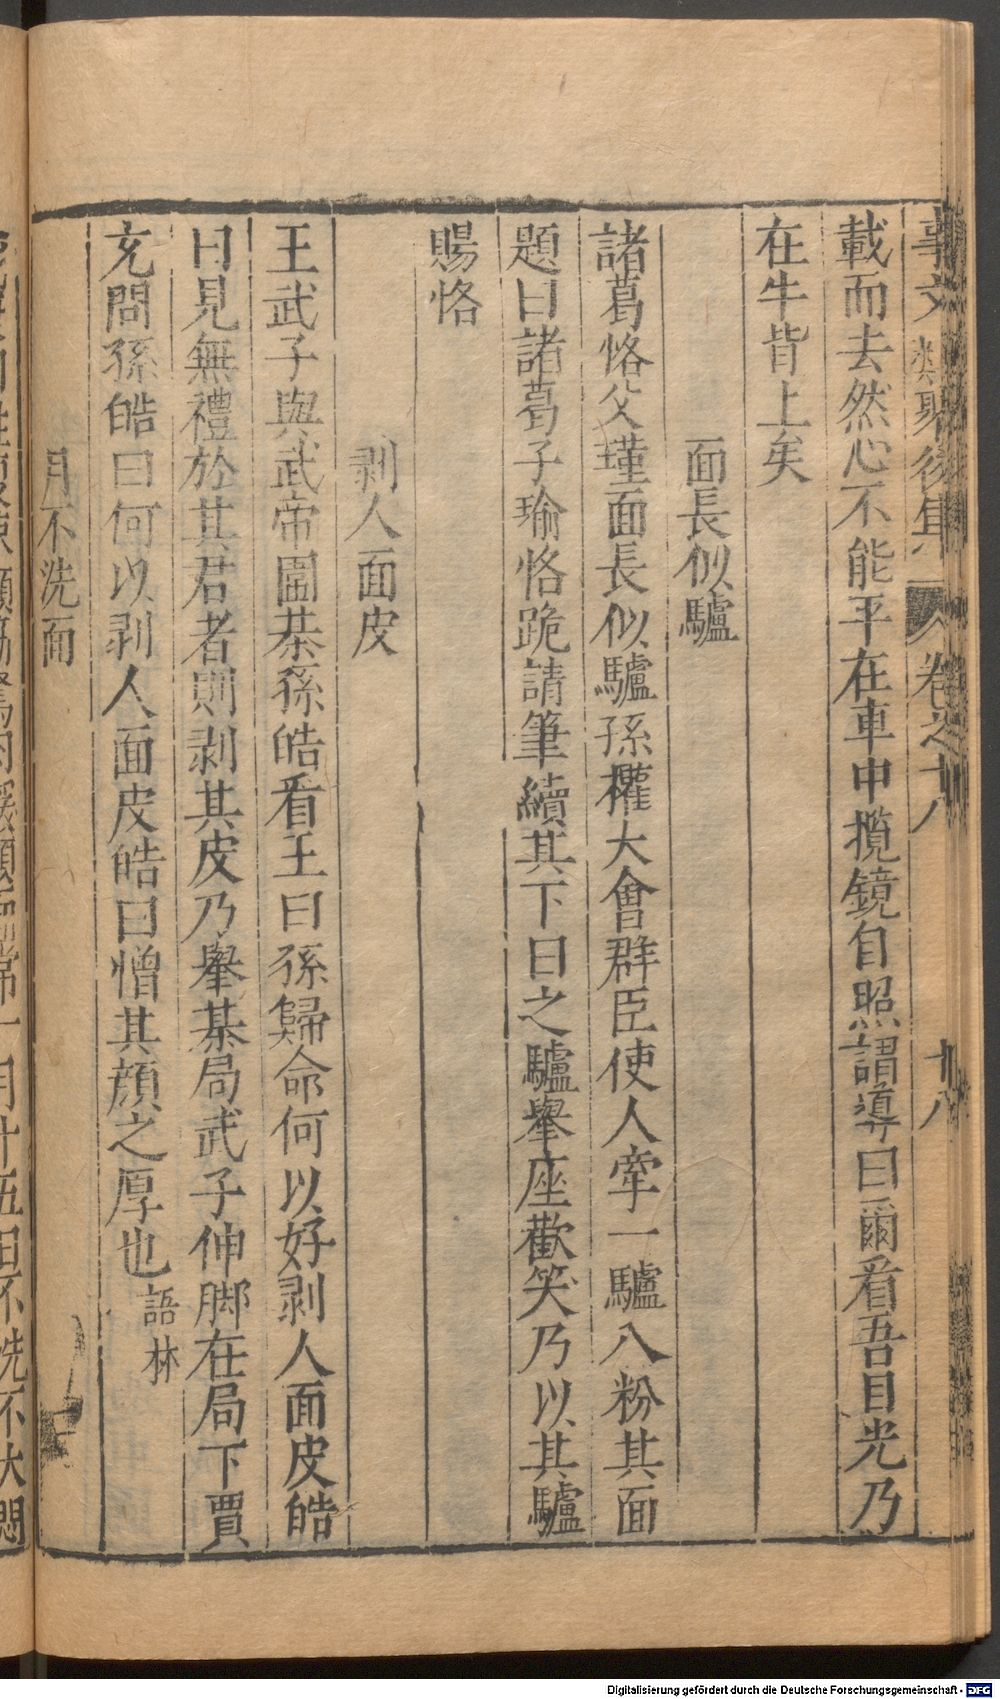 事文類聚後集 卷之十八 十八
載而去然心不能平在車中攬鏡自照謂導曰爾看吾目光乃
在牛背上矣
面長似驢
諸葛恪父瑾面長似驢孫權大會群臣使人牽一驢入粉其面
題曰諸葛子瑜恪跪請筆續其下曰之驢舉座歡笑乃以其驢
賜恪
剥人面皮
王武子與武帝圍棊孫皓看王曰孫歸命何以好剥人面皮皓
曰見無禮於其君者則剥其皮乃舉棊局武子伸脚在局下賈
充問孫皓曰何以剥人面皮皓曰憎其顔之厚也語林
月不洗面
常一月十五日不洗不大悶
Digitalisierung gefördert durch die Deutsche Forschungsgemeinschaft - DFG